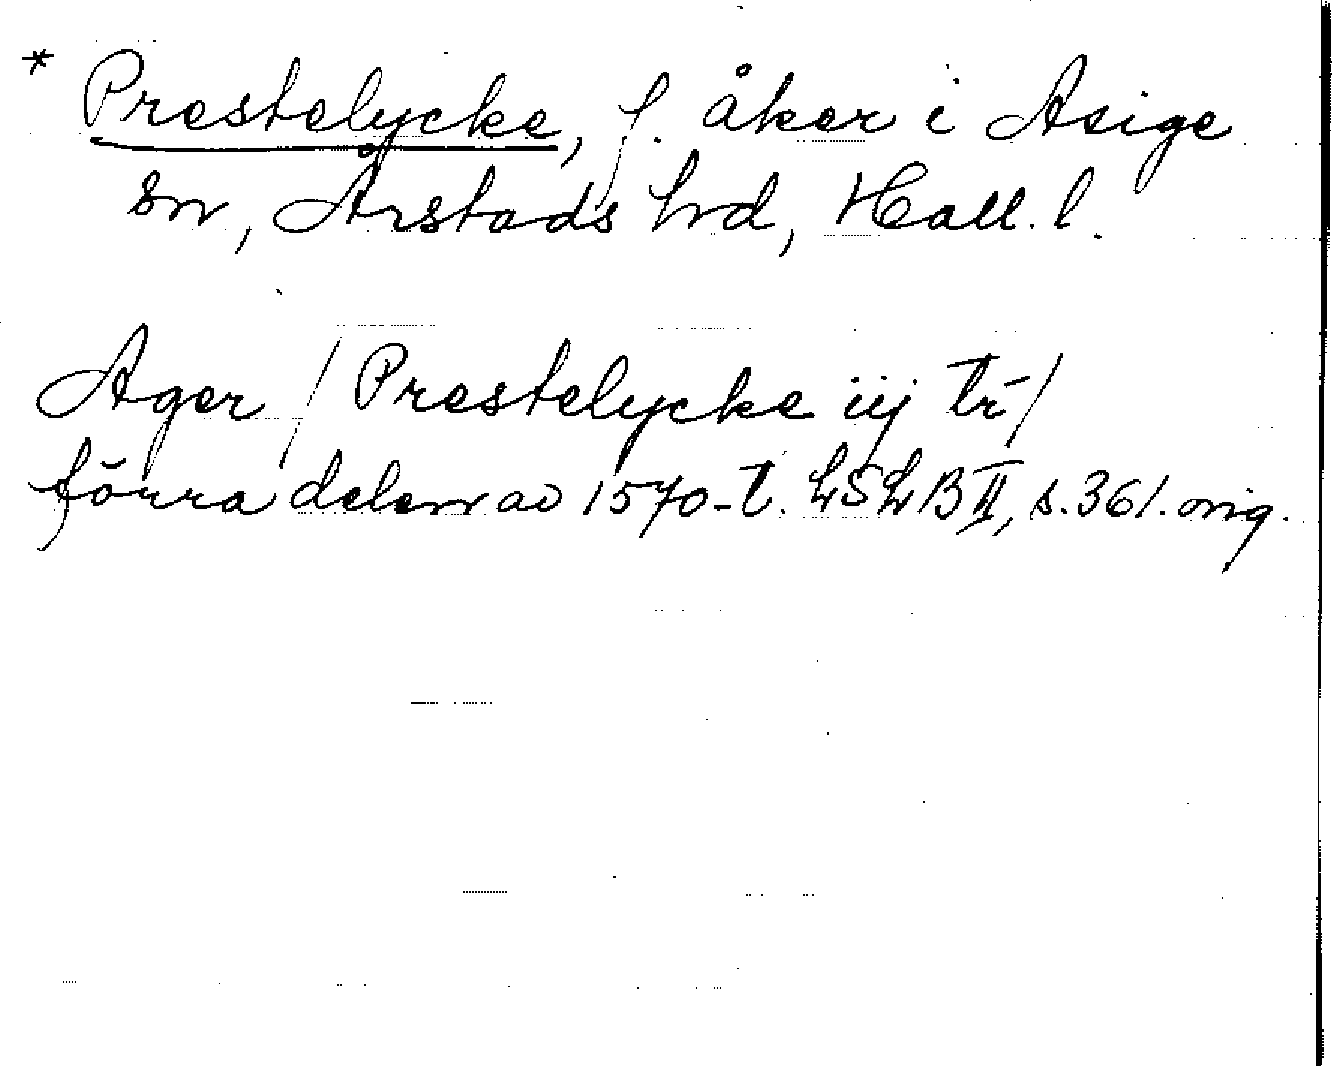 * Prestelycke, f. åker i Asige
sn, Årstads hrd, Hall. l.
Ager / Prestelycke iij tr̄ /
förra delen av 1570-t. LSLB II, s. 361. orig.